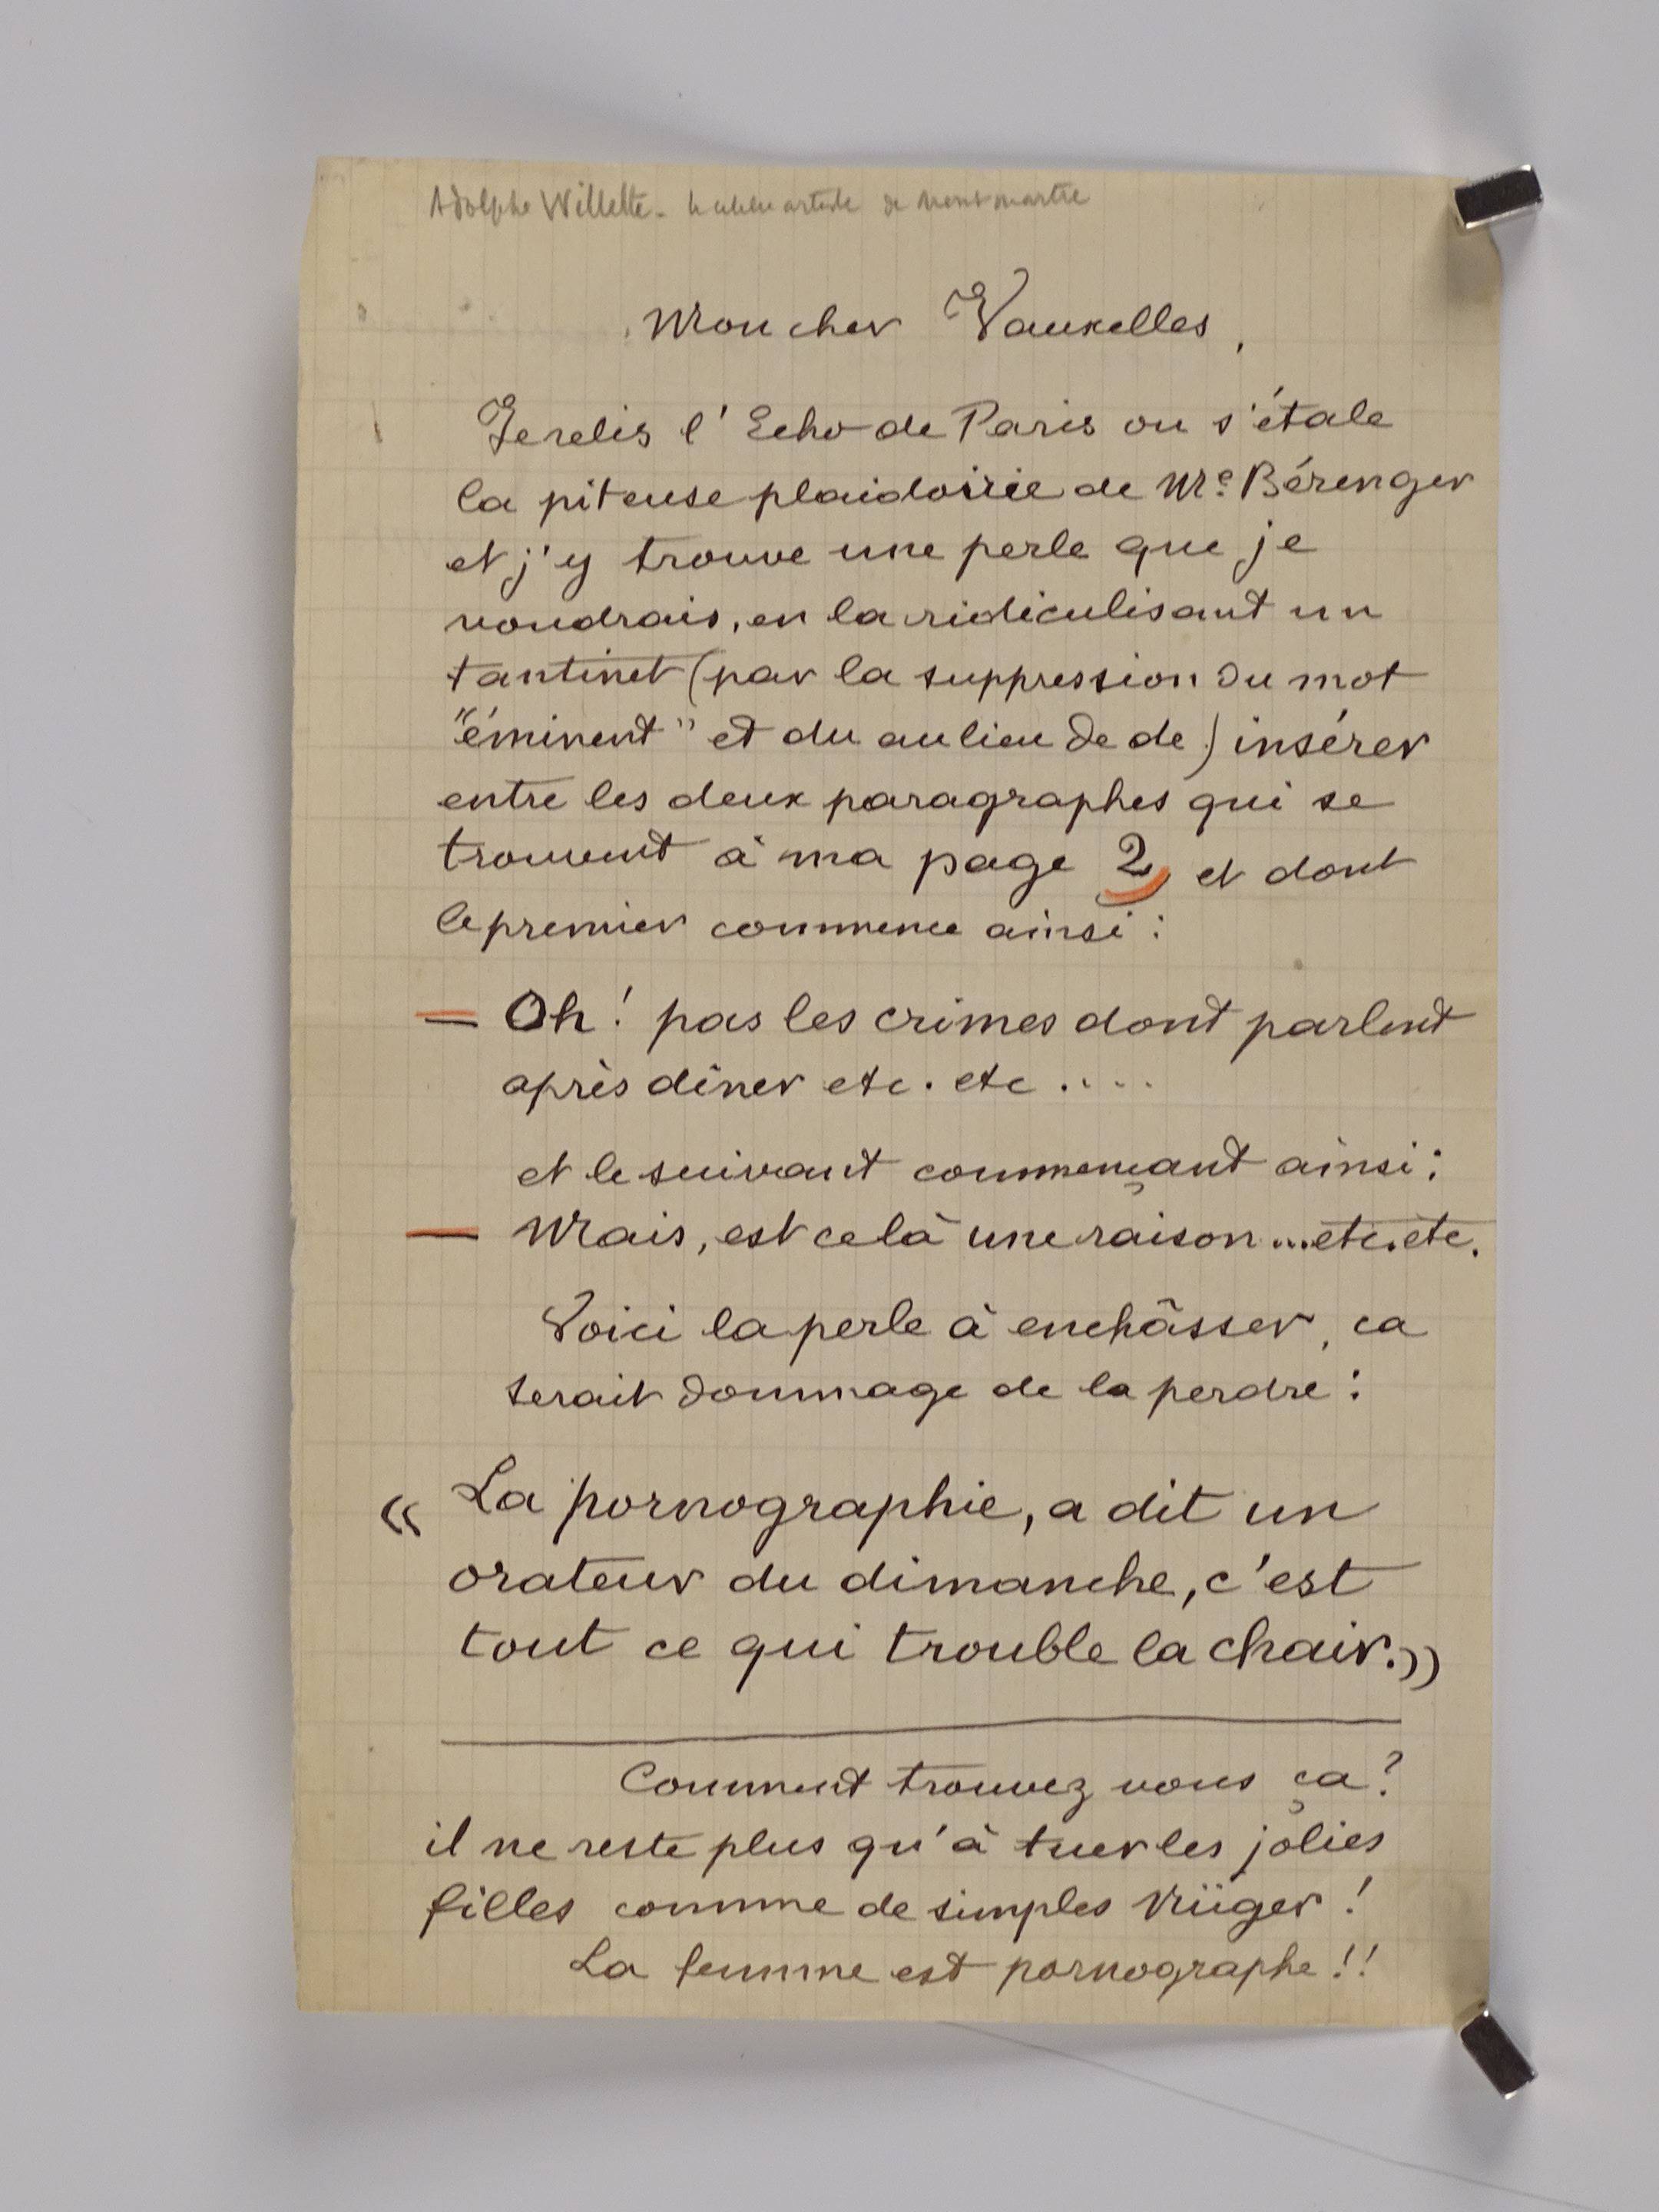 Adolphe Willette - le célèbre artiste de Montmartre
Mon cher Vauxelles,
Je relis l'Echo de Paris ou s'étale
la piteuse plaidoirie de Me Bérenger
et j'y trouve une perle que je
voudrais, en la ridiculisant un
tantinet (par la suppression du mot
"éminent" et du au lieu de de) insérer
entre les deux paragraphes qui se
trouvent à ma page 2, et dont
le premier commence ainsi :
— Oh! pas les crimes dont parlent
après dîner etc. etc ....
et le suivant commençant ainsi :
— Mais, est ce là une raison ... etc. etc.
Voici la perle à enchâsser, ca
serait dommage de la perdre :
« La pornographie, a dit un
orateur du dimanche, c'est
tout ce qui trouble la chair. »
Comment trouvez vous ça ?
il ne reste plus qu'à tuer les jolies
filles comme de simples !
La femme est pornographe !!